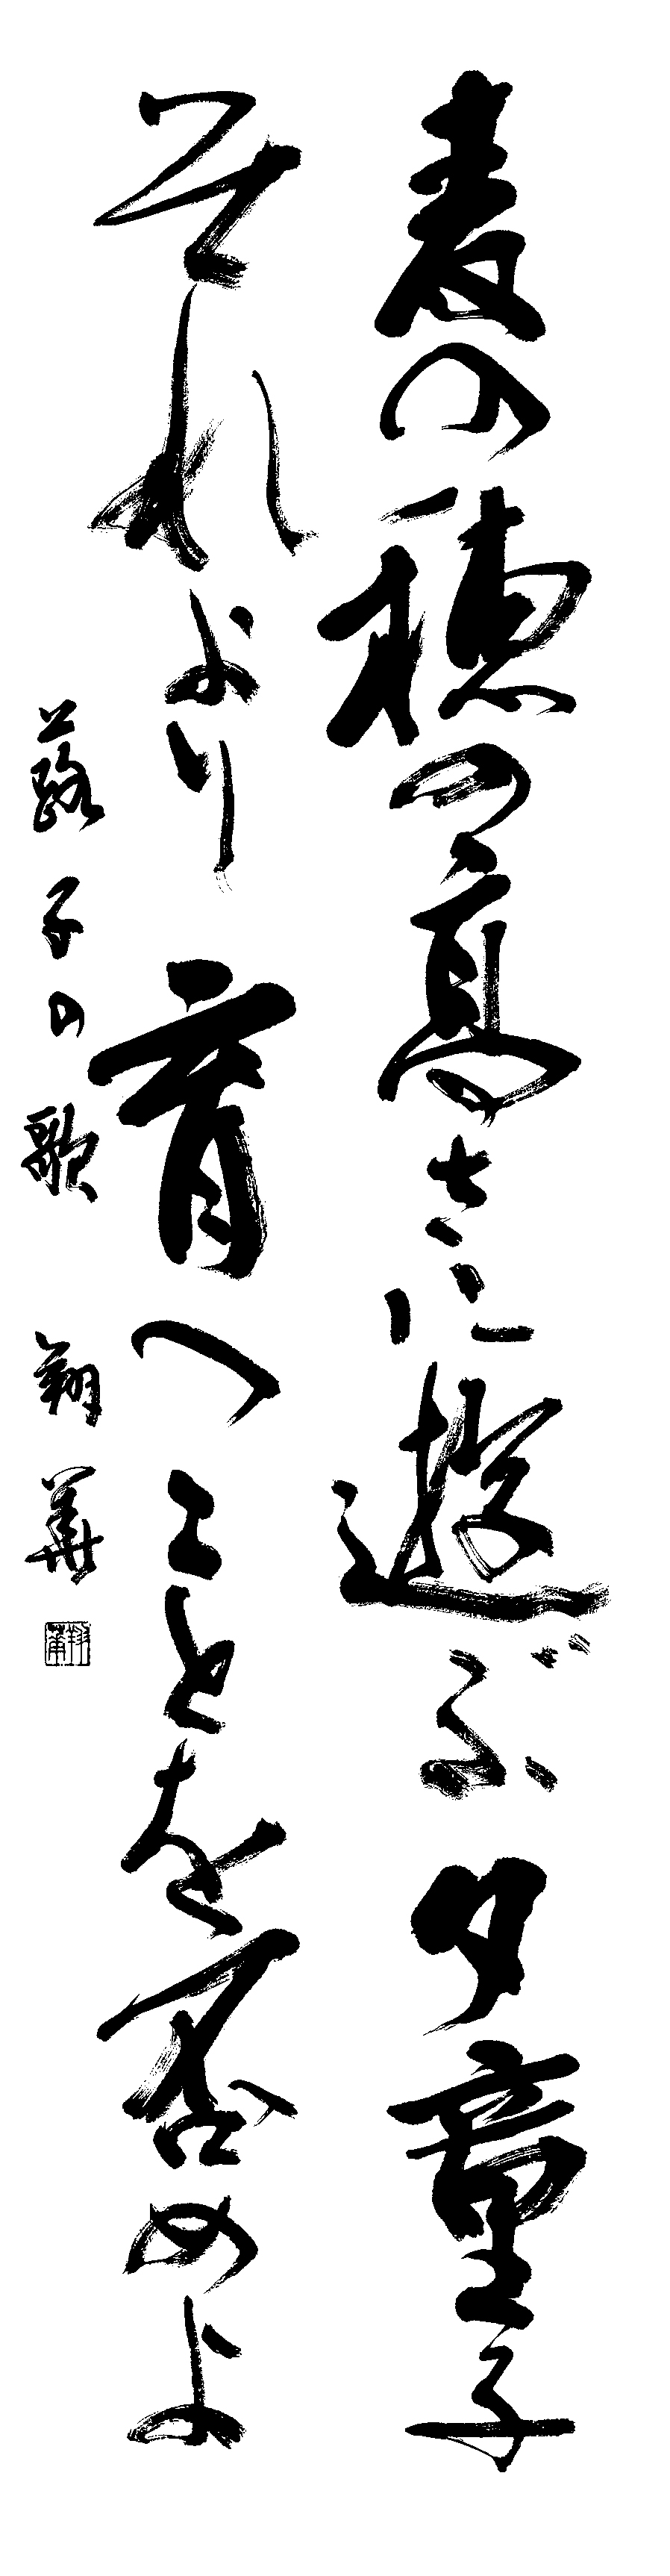 麦の穂の高さに遊ぶ夕童子
それより育へことを否めよ
蕗子の歌 翔華
翔華